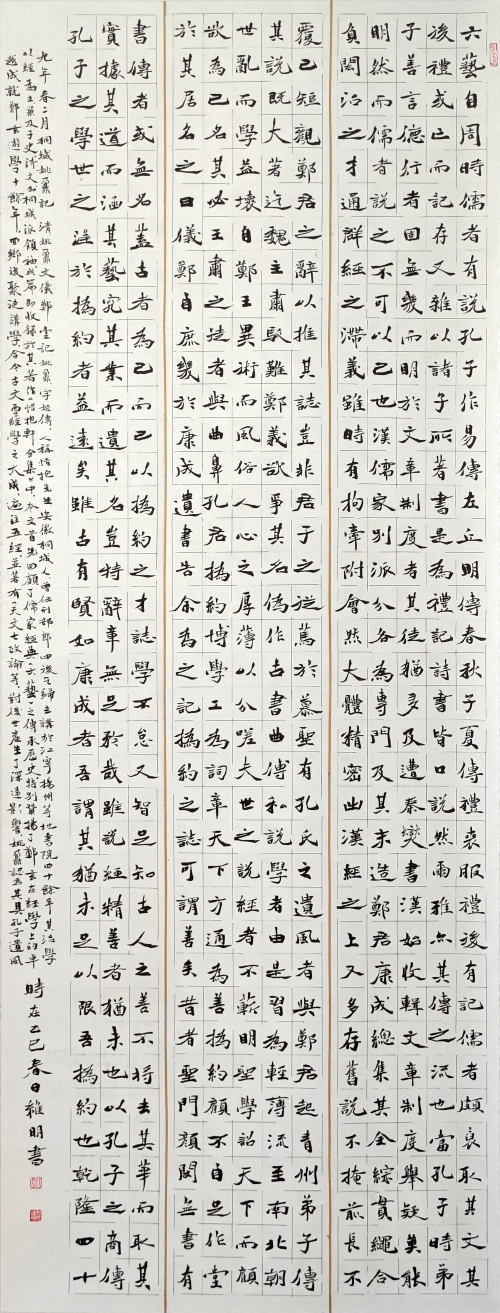 六藝自周時儒者有說孔子作易傳左丘明傳春秋子夏傳禮喪服禮後有記儒者頗裒取其文其
後禮或亡而記存又雜以諸子所著書是為禮記詩書皆口說然爾雅亦其傳之流也當孔子時弟
子善言德行者固無幾而明於文章制度者其徒猶多及遭秦焚書漢始收輯文章制度舉疑莫能
明然而儒者說之不可以已也漢儒家別派分各為專門及其末造鄭君康成總集其全綜貫繩合
負閎洽之才通群經之滯義雖時有拘牽附會然大體精密出漢經之上又多存舊說不掩前長不
覆己短觀鄭君之辭以推其誌豈非君子之徒篤於慕聖有孔氏之遺風者與鄭君起青州弟子傳
其說既大著迄魏王肅駁難鄭義欲爭其名偽作古書曲傳私說學者由是習為輕薄流至南北朝
世亂而學益壞自鄭王異術而風俗人心之厚薄以分嗟夫世之說經者不蘄明聖學詔天下而顧
欲為己名其必王肅之徒者與曲阜孔君撝約博學工為詞章天下方通為善撝約顧不自足作堂
於其居名之曰儀鄭自庶幾於康成遺書告余為之記撝約之誌可謂善矣昔者聖門顏閔無書有
書傳者或無名蓋古者為己而已以撝約之才誌學不怠又智足知古人之善不將去其華而取其
實據其道而涵其藝究其業而遺其名豈特辭章無足矜哉雖說經精善者猶未也以孔子之商傳
孔子之學世之淫於撝約者益遠矣雖古有賢如康成者吾謂其猶未足以限吾撝約也乾隆四十
九年春二月桐城姚鼐記 清姚鼐文儀鄭堂記姚鼐字姬傳人稱惜抱先生安徽桐城人曾任刑部郎中後辭歸主講於江寧揚州等地書院四十餘年其治學
以經為主兼及子史詩文為桐城派領袖此篇即收錄於其著作惜抱軒全集中本文首先回顧了儒家經典六藝之傳承歷史特別贊揚了鄭玄在經學上的卓
越成就鄭玄遊學十餘年歸鄉後聚徒講學合今古文兩經學之大成遍注五經並著有天文七政論等對後世產生了深遠影響姚鼐認為其具孔子遺風
時在乙巳春日雅明書